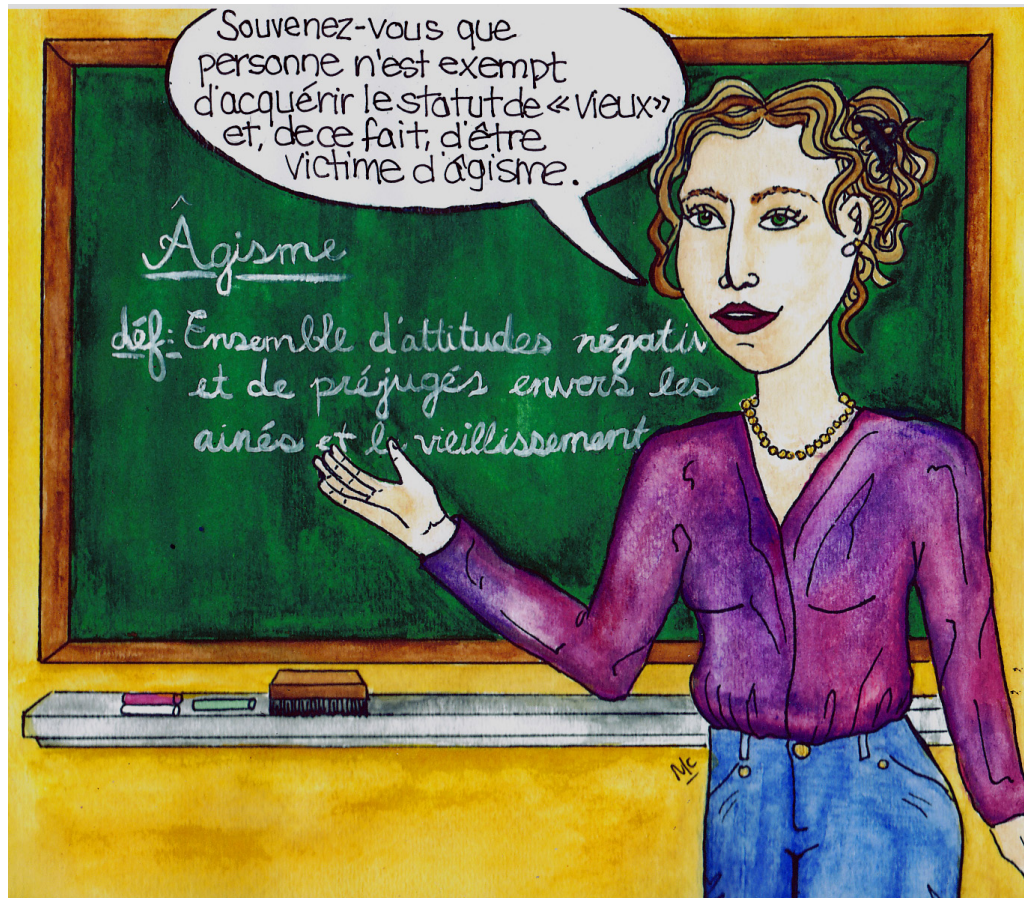 Souvenez-vous que
personne n'est exempt
d'acquérir le statut de « vieux »
et, de ce fait, d'être
victime d'âgisme.
Âgisme
déf: Ensemble d'attitudes négativ
et de préjugés envers les
ainés et le vieillissement
Mc